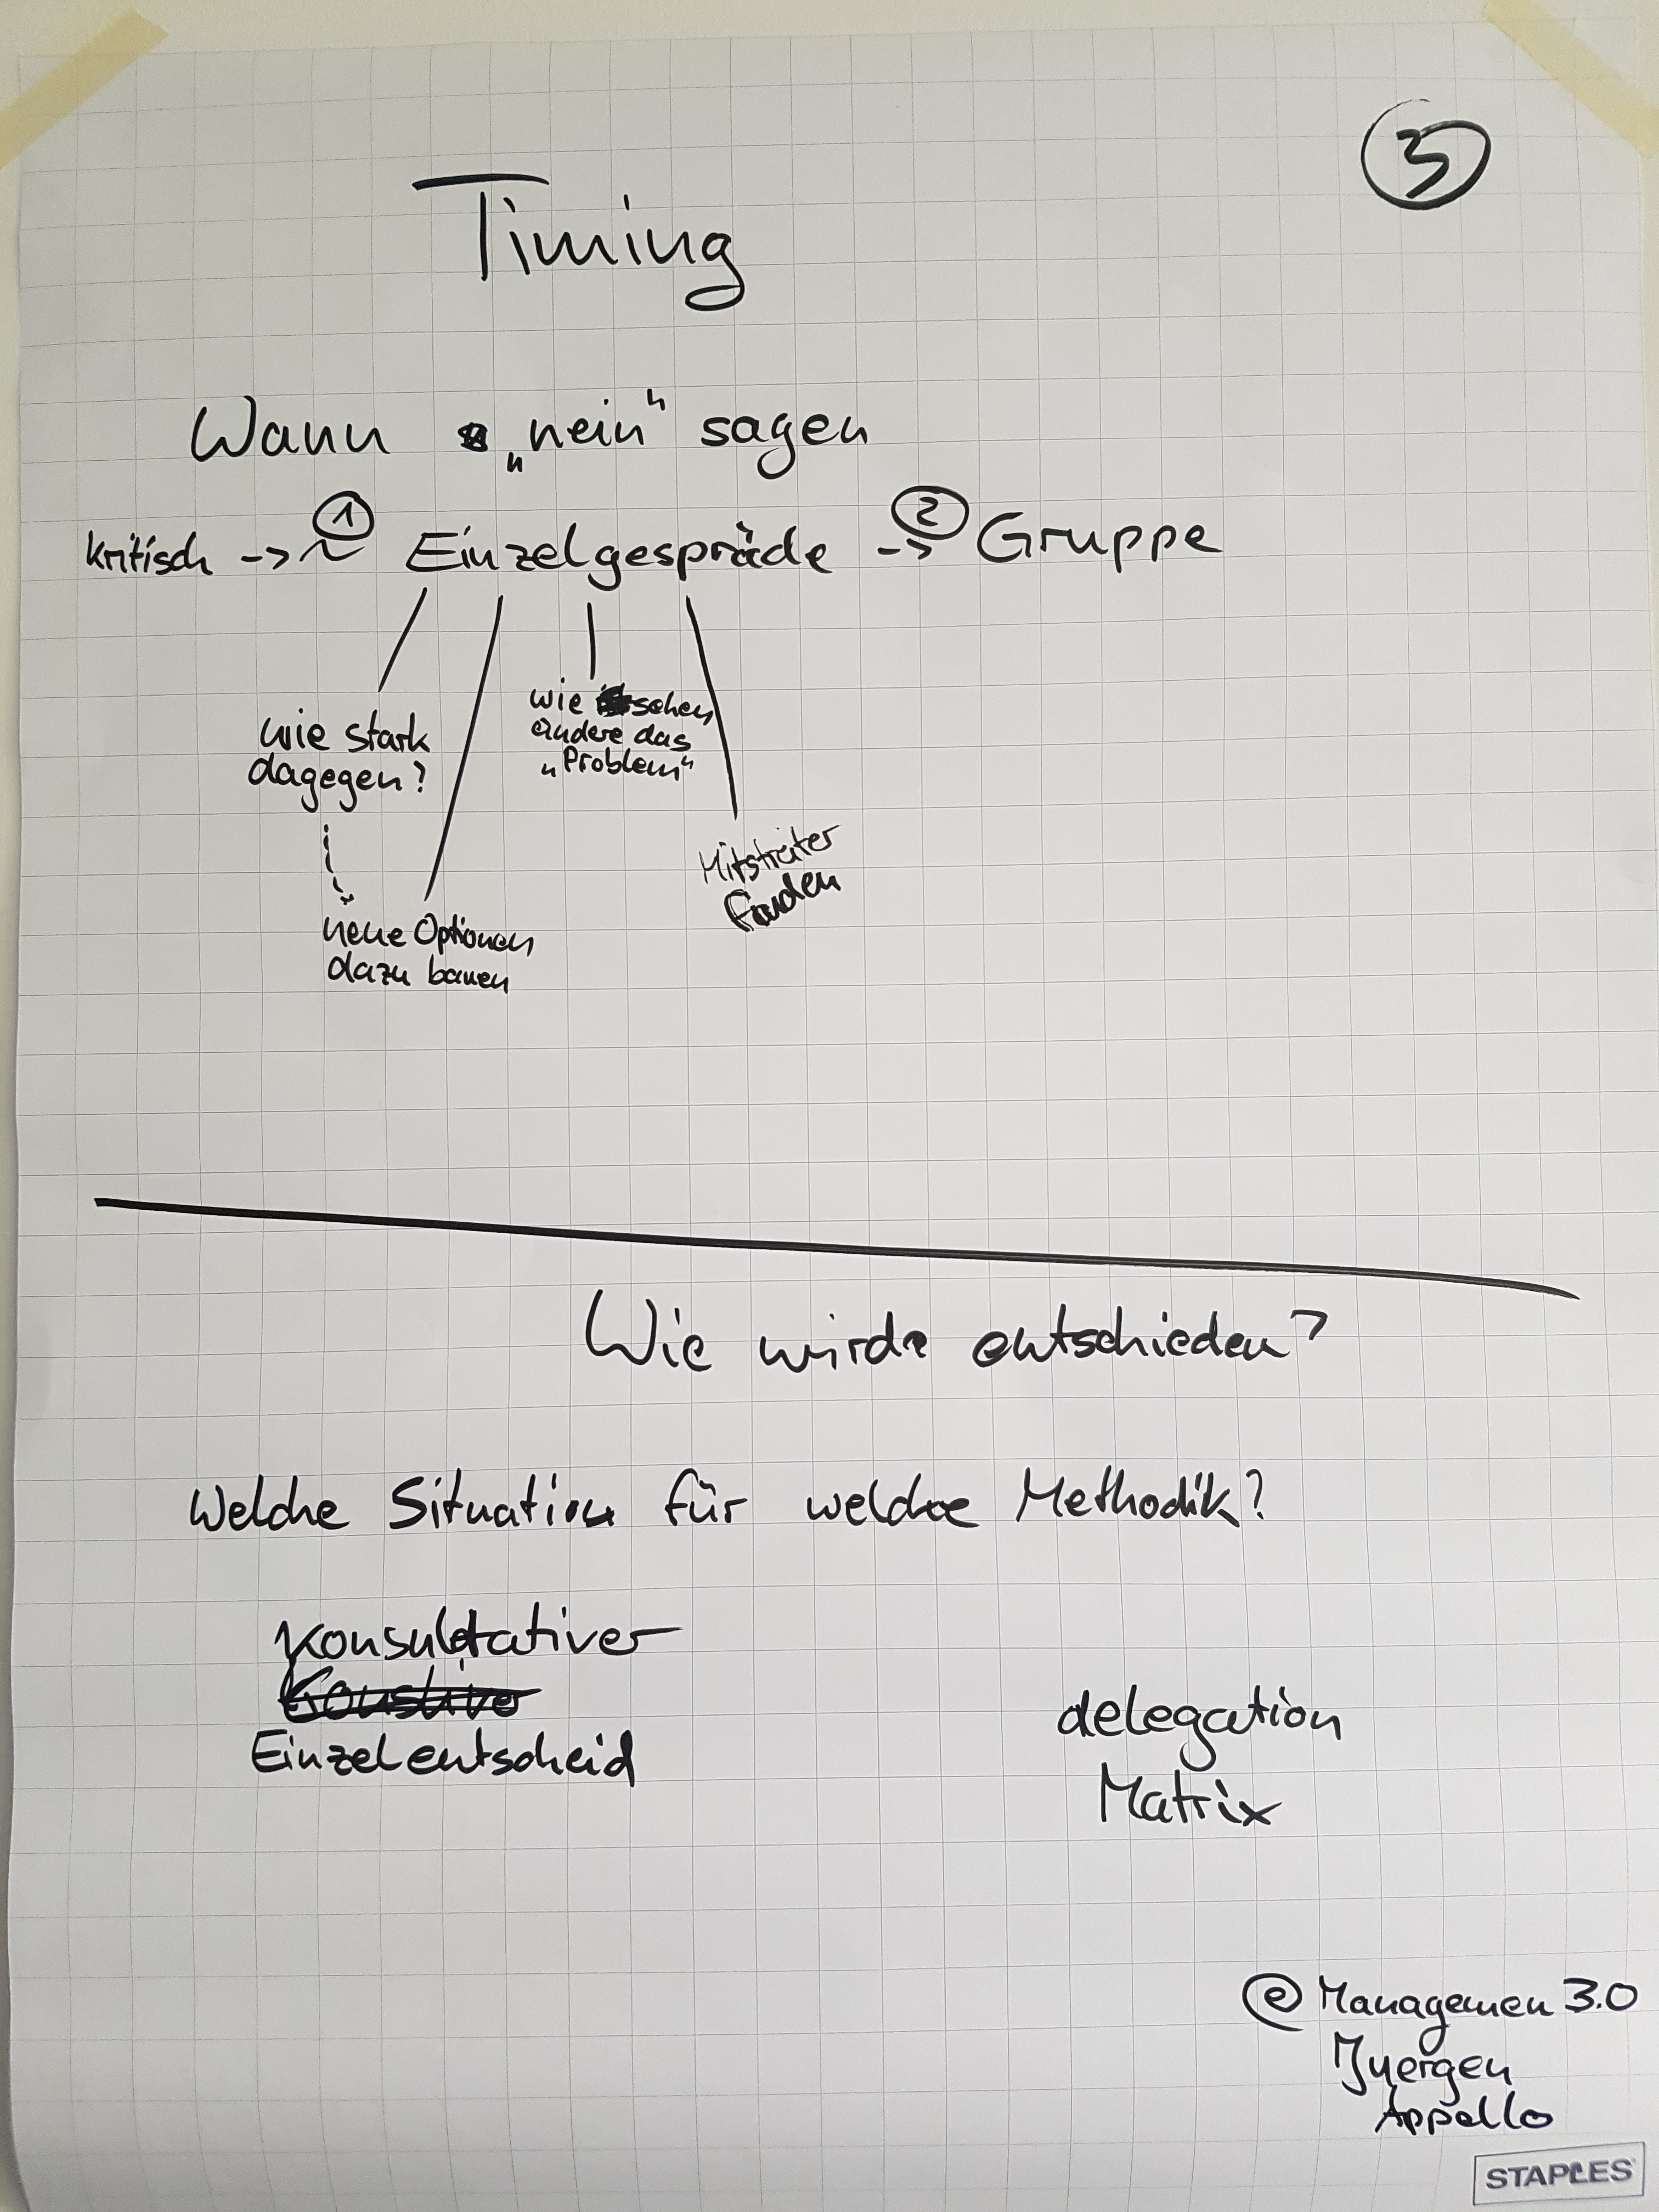 3
Timing
Wann „nein" sagen
kritisch -> 1 Einzelgespräche 2 -> Gruppe
wie stark
dagegen?
wie sehen
andere das
„Problem"
Mitstreiter
finden
neue Optionen
dazu bauen
Wie wirde entschieden?
Welche Situation für welche Methodik?
Konsultativer
Einzelentscheid
delegation
Matrix
@ Managemen 3.0
Juergen
Appello
STAPLES